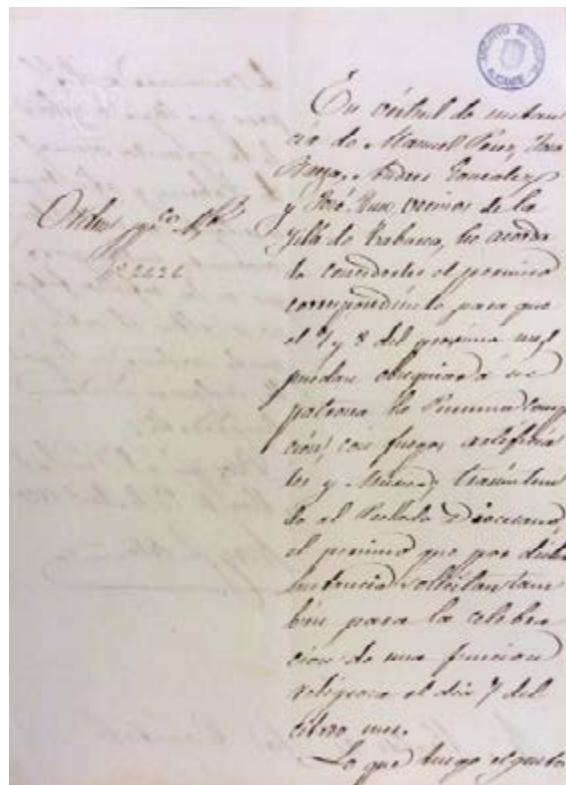 ARCHIVO MUNICIPAL
ALICANTE
En virtud de instan
cia de Manuel Perez, José
Andres Gonzalez
y José vecinos de la
Isla de Tabarca, he acorda
do concederles el permiso
correspondiente para que
el 7 y 8 del proximo mes
puedan obsequiar á su
patrona la Purisima Concep
ción, con fuegos artificia
les y Musica, trasmitien
do al Prelado Diocesano,
el permiso que por dicha
instancia solicitan tam
bien para la celebra
cion de una funcion
religiosa el dia 7 del
citado mes.
Lo que tengo el gusto
Orden pco
Nº 2626